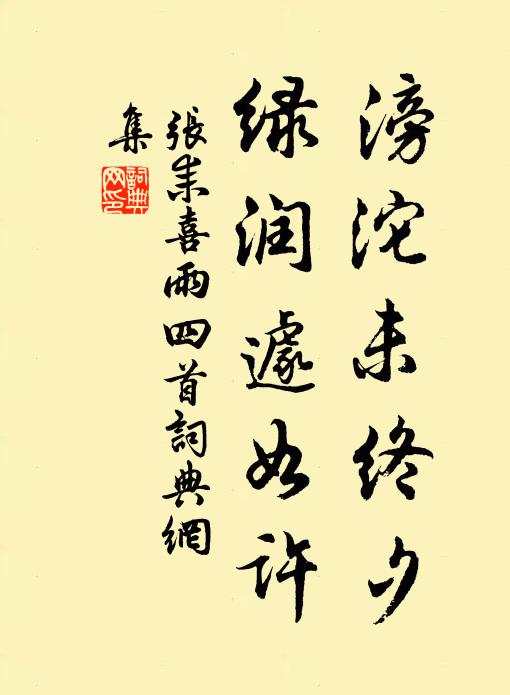 滂沱未终夕
绿润遽如许
張耒喜雨四首詞典網
集
詞典
网印